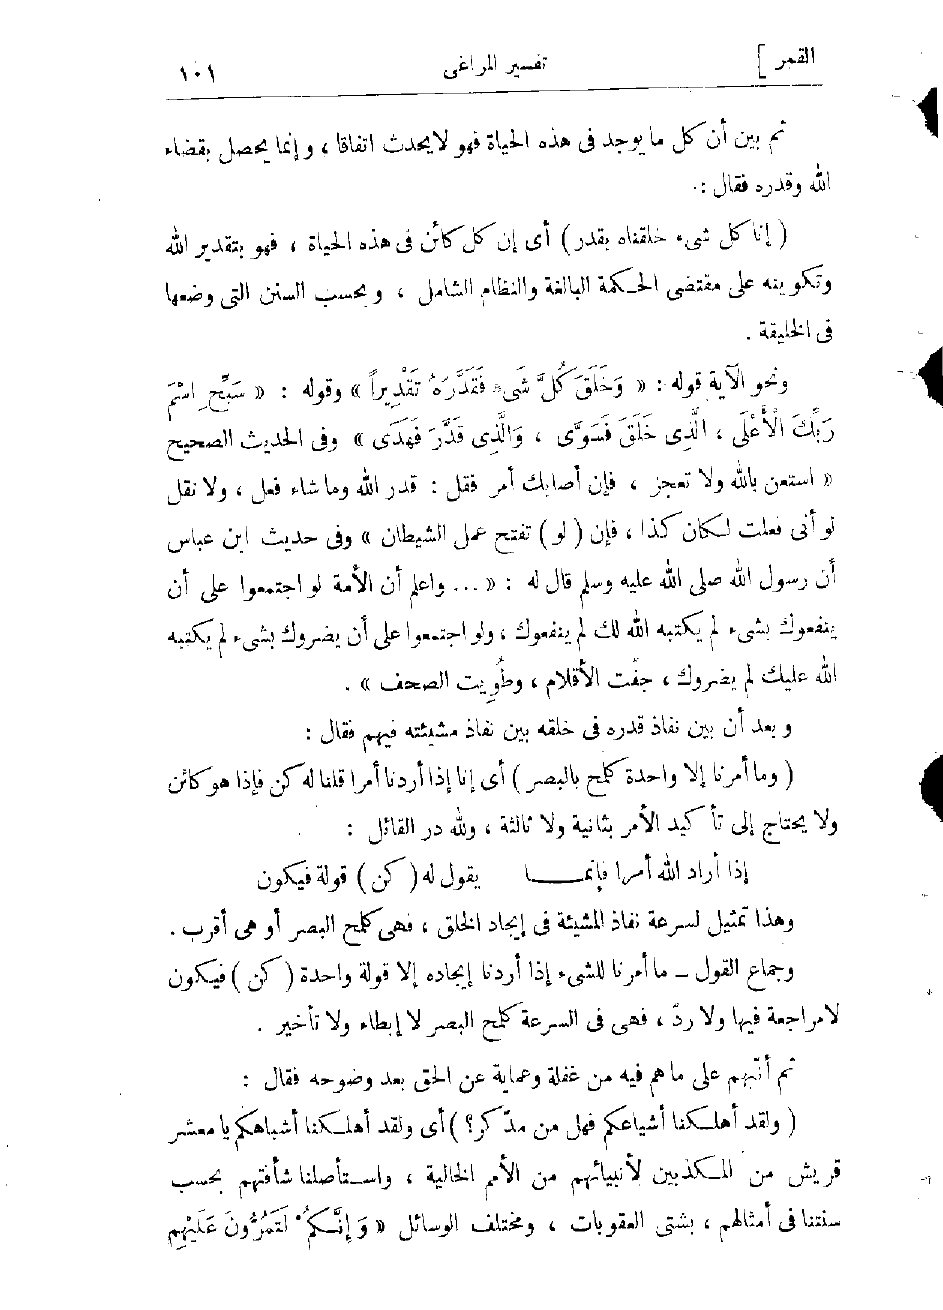 القمر ]
تفسير المراغى
١٠١
ثم بين أن كل ما يوجد فى هذه الحياة فهو لا يحدث اتفاقا ، وإنما يحصل بقضاء
الله وقدره فقال :
( إنا كل شىء خلقناه بقدر ) أى إن كل كائن فى هذه الحياة ، فهو بتقدير الله
وتكوينه على مقتضى الحكمة البالغة والنظام الشامل ، وبحسب السنن التى وضعها
فى الخليقة .
ونحو الآية قوله : « وَخَلَقَ كُلَّ شَىْءٍ فَقَدَّرَهُ تَقْدِيراً » وقوله : « سَبِّحِ اسْمَ
رَبِّكَ الْأَعْلَى ، الَّذِى خَلَقَ فَسَوَّى ، وَالَّذِى قَدَّرَ فَهَدَى » وفى الحديث الصحيح
« استعن بالله ولا تعجز ، فإن أصابك أمر فقل : قدر الله وما شاء فعل ، ولا تقل
لو أنى فعلت لكان كذا ، فإن ( لو ) تفتح عمل الشيطان » وفى حديث ابن عباس
أن رسول الله صلى الله عليه وسلم قال له : « ... واعلم أن الأمة لو اجتمعوا على أن
ينفعوك بشىء لم يكتبه الله لك لم ينفعوك ، ولو اجتمعوا على أن يضروك بشىء لم يكتبه
الله عليك لم يضروك ، جفّت الأقلام ، وطُوِيت الصحف » .
وبعد أن بين نفاذ قدره فى خلقه بين نفاذ مشيئته فيهم فقال :
( وما أمرنا إلا واحدة كلمح بالبصر ) أى إنا إذا أردنا أمرا قلنا له كن فإذا هو كائن
ولا يحتاج إلى تأكيد الأمر بثانية ولا ثالثة ، ولله در القائل :
إذا أراد الله أمرا فإنمــا يقول له ( كن ) قولة فيكون
وهذا تمثيل لسرعة نفاذ المشيئة فى إيجاد الخلق ، فهى كلمح البصر أو هى أقرب .
وجماع القول – ما أمرنا للشىء إذا أردنا إيجاده إلا قولة واحدة ( كن ) فيكون
لا مراجعة فيها ولا ردّ ، فهى فى السرعة كلمح البصر لا إبطاء ولا تأخير .
ثم أنّبهم على ما هم فيه من غفلة وعماية عن الحق بعد وضوحه فقال :
( ولقد أهلكنا أشياعكم فهل من مدّكر؟ ) أى ولقد أهلكنا أشباهكم يا معشر
قريش من المكذبين لأنبيائهم من الأمم الخالية ، واستأصلنا شأفتهم بحسب
سنتنا فى أمثالهم ، بشتى العقوبات ، ومختلف الوسائل « وَإِنَّكُمْ لَتَمُرُّونَ عَلَيْهِم